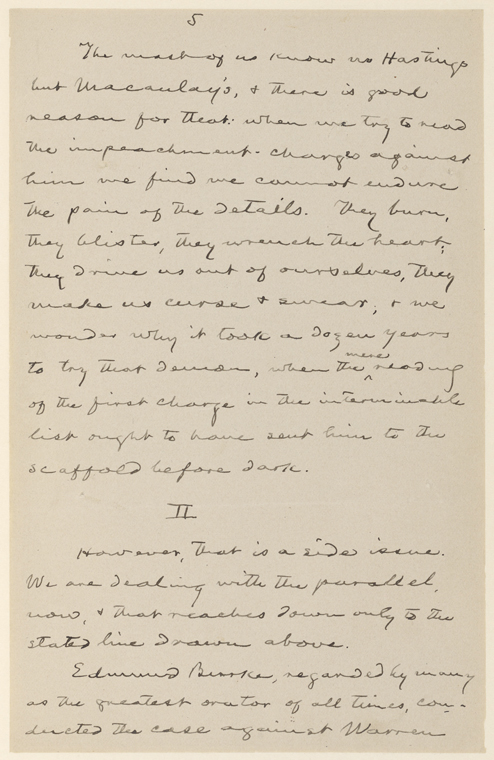 5
The most of us know no Hastings
but Macaulay's, & there is good
reason for that: when we try to read
the impeachment-charges against
him we find we cannot endure
the pain of the details. They burn,
they blister, they wrench the heart;
they drive us out of ourselves, they
make us curse & swear; & we
wonder why it took a dozen years
to try that demon, when the mere reading
of the first charge in the interminable
list ought to have sent him to the
scaffold before dark.
II
However, that is a side issue.
We are dealing with the parallel,
now, & that reaches down only to the
stated line drawn above.
Edmund Burke, regarded by many
as the greatest orator of all times, con-
ducted the case against Warren